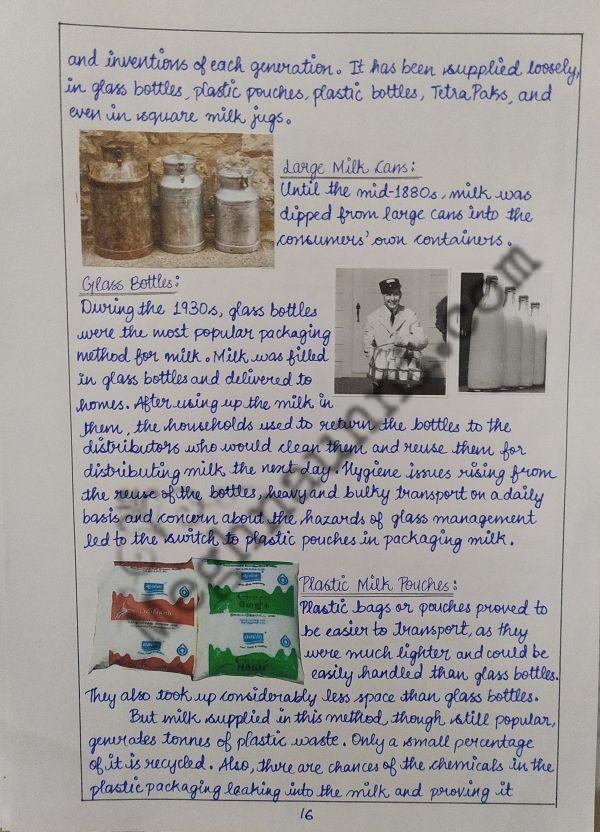 and inventions of each generation. It has been supplied loosely,
in glass bottles, plastic pouches, plastic bottles, Tetra Paks, and
even in square milk jugs.
Large Milk Cans:
Until the mid-1880s, milk was
dipped from large cans into the
consumers' own containers.
Glass Bottles:
During the 1930s, glass bottles
were the most popular packaging
method for milk. Milk was filled
in glass bottles and delivered to
homes. After using up the milk in
them, the households used to return the bottles to the
distributors who would clean them and reuse them for
distributing milk the next day. Hygiene issues rising from
the reuse of the bottles, heavy and bulky transport on a daily
basis and concern about the hazards of glass management
led to the switch to plastic pouches in packaging milk.
Plastic Milk Pouches:
Plastic bags or pouches proved to
be easier to transport, as they
were much lighter and could be
easily handled than glass bottles.
They also took up considerably less space than glass bottles.
But milk supplied in this method, though still popular,
generates tonnes of plastic waste. Only a small percentage
of it is recycled. Also, there are chances of the chemicals in the
plastic packaging leaking into the milk and proving it
16